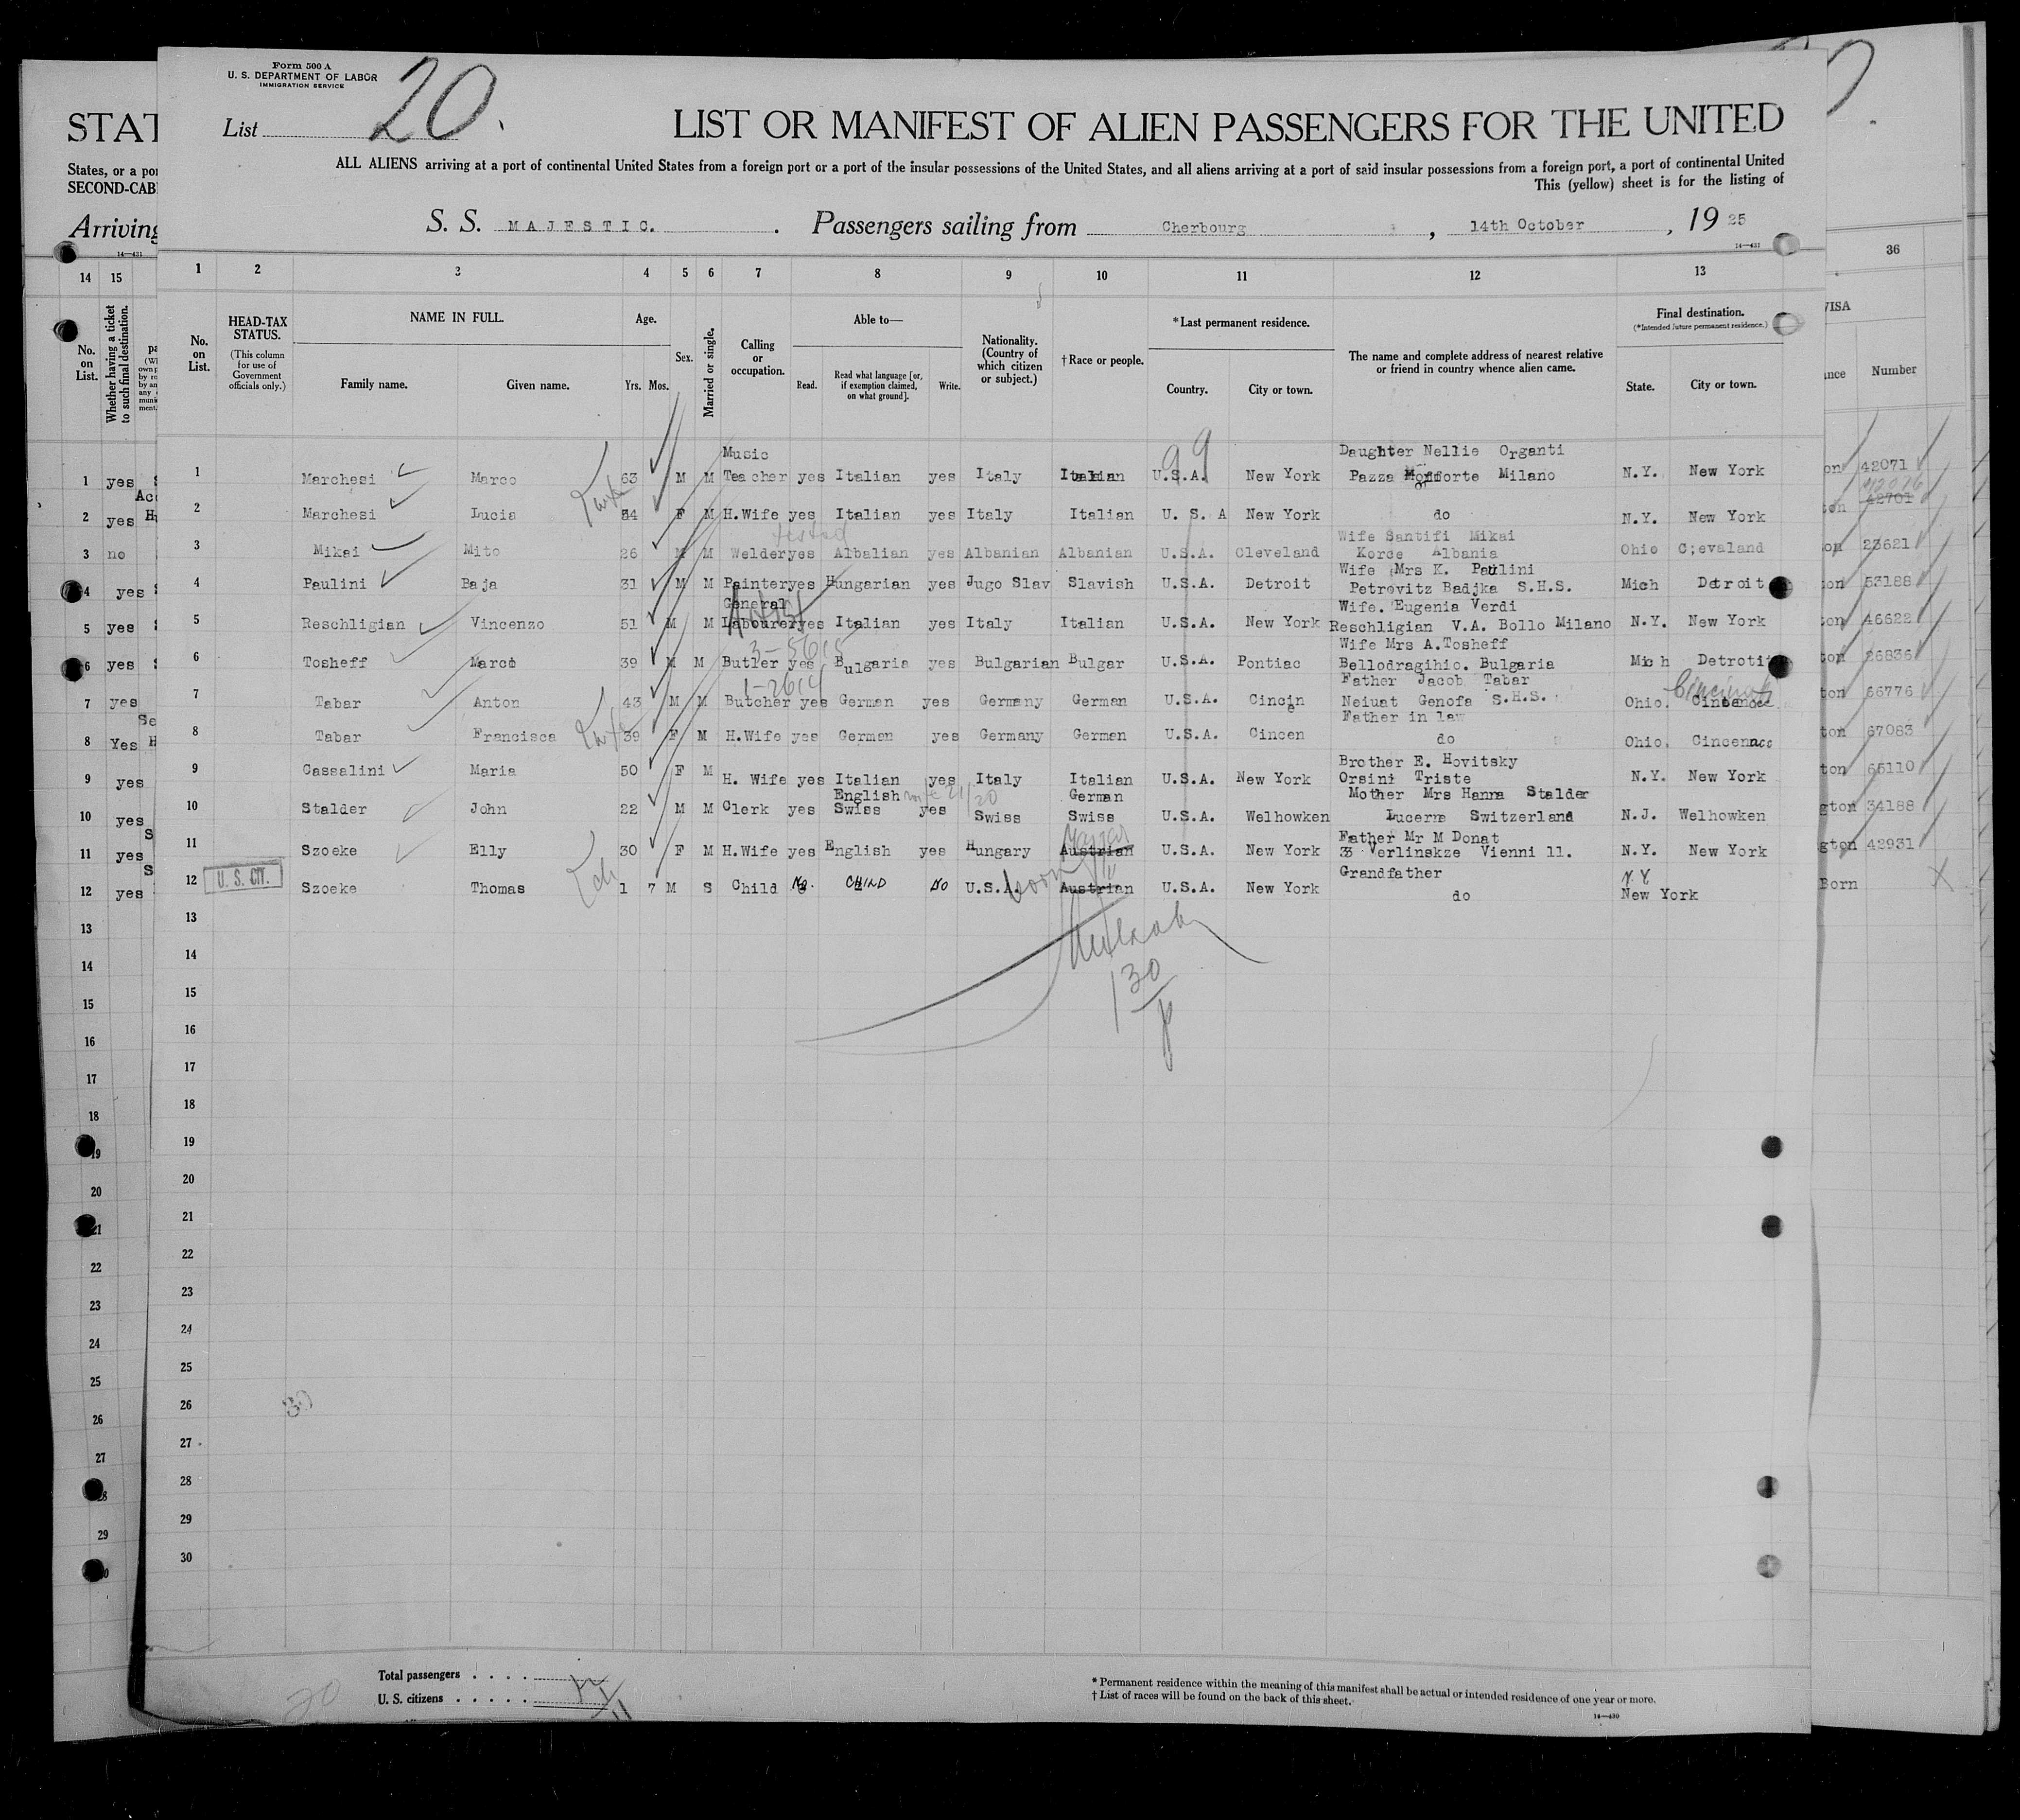 Form 500 A
U. S. DEPARTMENT OF LABOR
IMMIGRATION SERVICE
List 20.
LIST OR MANIFEST OF ALIEN PASSENGERS FOR THE UNITED
ALL ALIENS arriving at a port of continental United States from a foreign port or a port of the insular possessions of the United States, and all aliens arriving at a port of said insular possessions from a foreign port, a port of continental United
This (yellow) sheet is for the listing of
S. S. MAJESTIC. Passengers sailing from Cherbourg, 14th October, 1925
14—431
STAT
States, or a po
SECOND-CAB
Arriving
14—431
14 15
No. on List.
Whether having a ticket to such final destination.
1 2 3 4 5 6 7 8 9 10 11 12 13
36
VISA
Number
No. on List.
HEAD-TAX STATUS.
(This column for use of Government officials only.)
NAME IN FULL.
Family name. Given name.
Age.
Yrs. Mos.
Sex.
Married or single.
Calling or occupation.
Able to—
Read. Read what language [or, if exemption claimed, on what ground]. Write.
Nationality. (Country of which citizen or subject.)
†Race or people.
*Last permanent residence.
Country. City or town.
The name and complete address of nearest relative or friend in country whence alien came.
Final destination.
(*Intended future permanent residence.)
State. City or town.
Music Daughter Nellie Organti
1 yes 1 Marchesi Marco 63 M M Teacher yes Italian yes Italy Italian U.S.A. New York Pazza Milano N.Y. New York 42071
99
2 yes 2 Marchesi Lucia F M H.Wife yes Italian yes Italy Italian U. S. A New York do N.Y. New York 42701
tested
Wife Santifi Mikai
3 no 3 Mikai Mito 26 M M Welder yes Albalian yes Albanian Albanian U.S.A. Cleveland Korce Albania Ohio C;evaland 23621
Wife Mrs K. Paulini
4 yes 4 Paulini Baja 31 M M Painter yes Hungarian yes Jugo Slav Slavish U.S.A. Detroit Petrovitz Badjka S.H.S. Mich Detroit 53188
General Wife. Eugenia Verdi
5 yes 5 Reschligian Vincenzo 51 M M Labourer yes Italian yes Italy Italian U.S.A. New York Reschligian V.A. Bollo Milano N.Y. New York 46622
3-5615
Wife Mrs A.Tosheff
6 yes 6 Tosheff Marco 39 M M Butler yes Bulgaria yes Bulgarian Bulgar U.S.A. Pontiac Bellodragihio. Bulgaria Mich Detroti 26836
1-2614
Father Jacob Tabar
7 yes 7 Tabar Anton 43 M M Butcher yes German yes Germany German U.S.A. Cincin Neiuat Genofa S.H.S. Ohio. 66776
Father in law
8 Yes 8 Tabar Francisca 39 F M H.Wife yes German yes Germany German U.S.A. Cincen do Ohio. 67083
Brother E. Hovitsky
9 yes 9 Cassalini Maria 50 F M H. Wife yes Italian yes Italy Italian U.S.A. New York Orsini Triste N.Y. New York 65110
English German Mother Mrs Hanna Stalder
10 yes 10 Stalder John 22 M M Clerk yes Swiss yes Swiss Swiss U.S.A. Welhowken Lucerne Switzerland N.J. Welhowken 34188
Father Mr M Donat
11 yes 11 Szoeke Elly 30 F M H.Wife yes English yes Hungary Austrian U.S.A. New York 33 Verlinskze Vienni 11. N.Y. New York 42931
Grandfather N.Y
12 yes 12 U. S. CIT. Szoeke Thomas 1 7 M S Child No. CHIND No U.S.A. born Austrian U.S.A. New York do New York Born X
13
14
15
16
17
18
19
20
21
22
23
24
25
26
27
28
29
30
130
20
Total passengers
U. S. citizens
* Permanent residence within the meaning of this manifest shall be actual or intended residence of one year or more.
† List of races will be found on the back of this sheet.
14—430